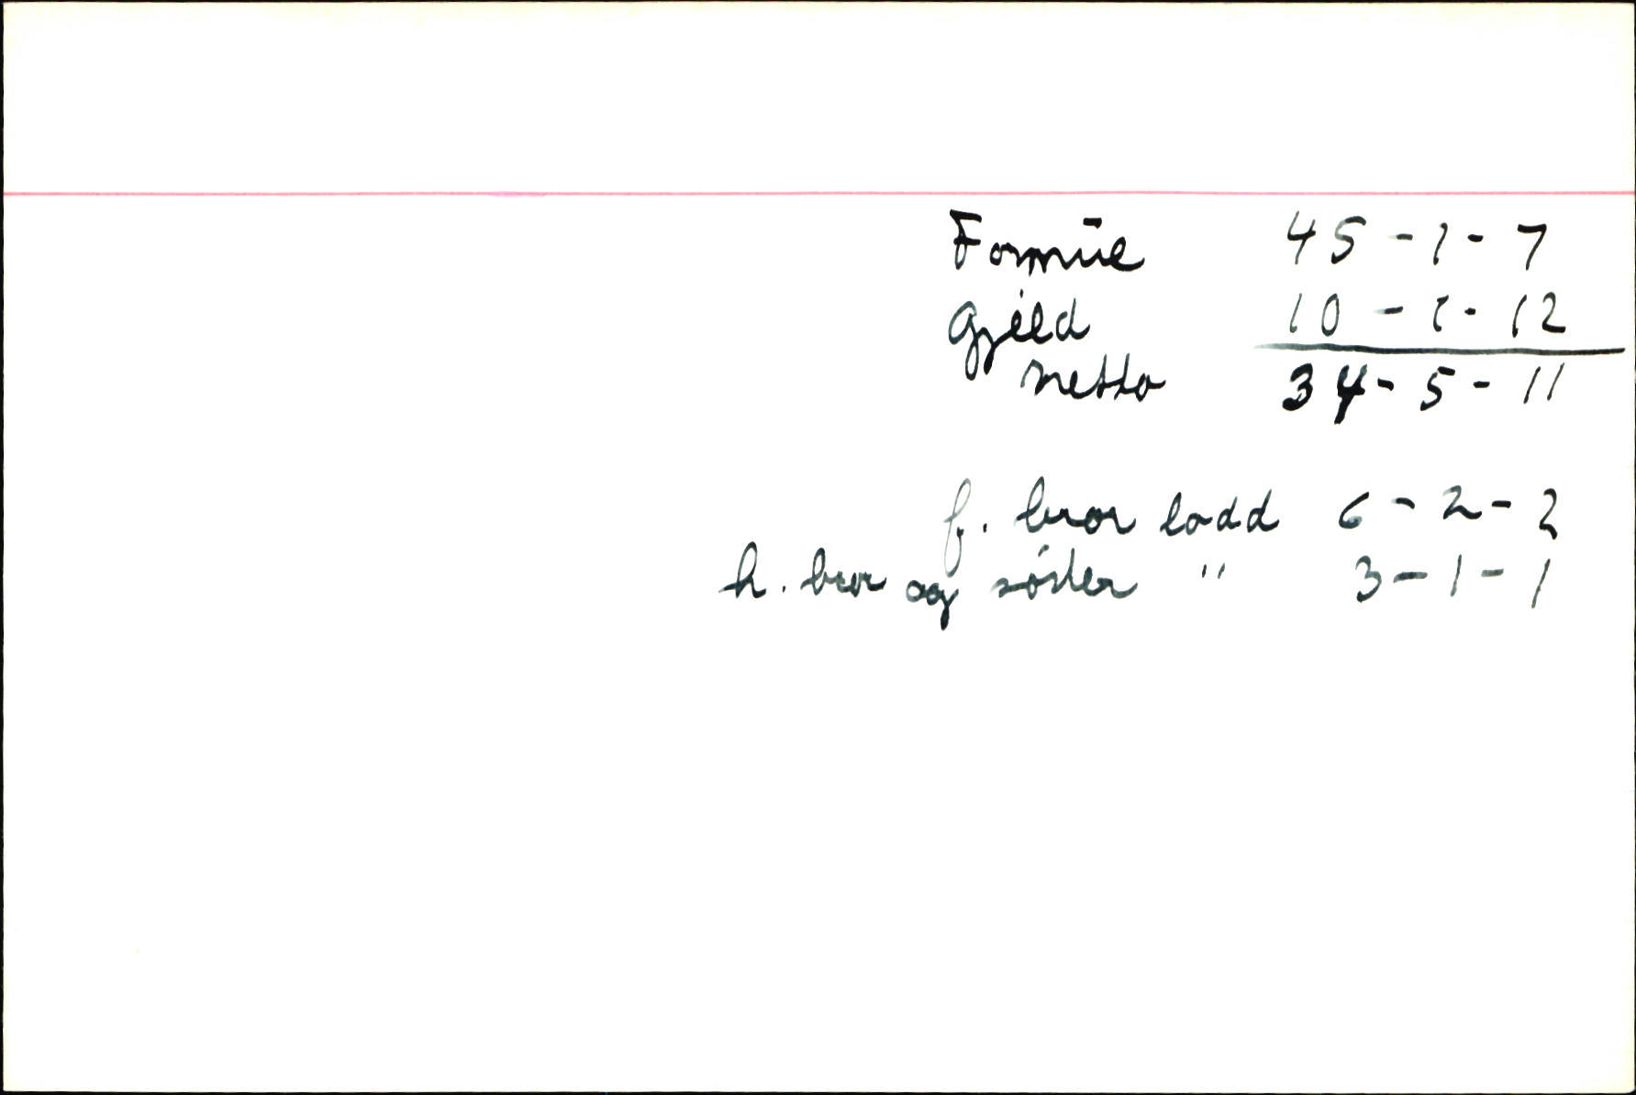 Formue 45 - 1 - 7
Gjeld 10 - 1 - 12
netto 34 - 5 - 11
f. bror lodd 6 - 2 - 2
h. bror og söster " 3 - 1 - 1